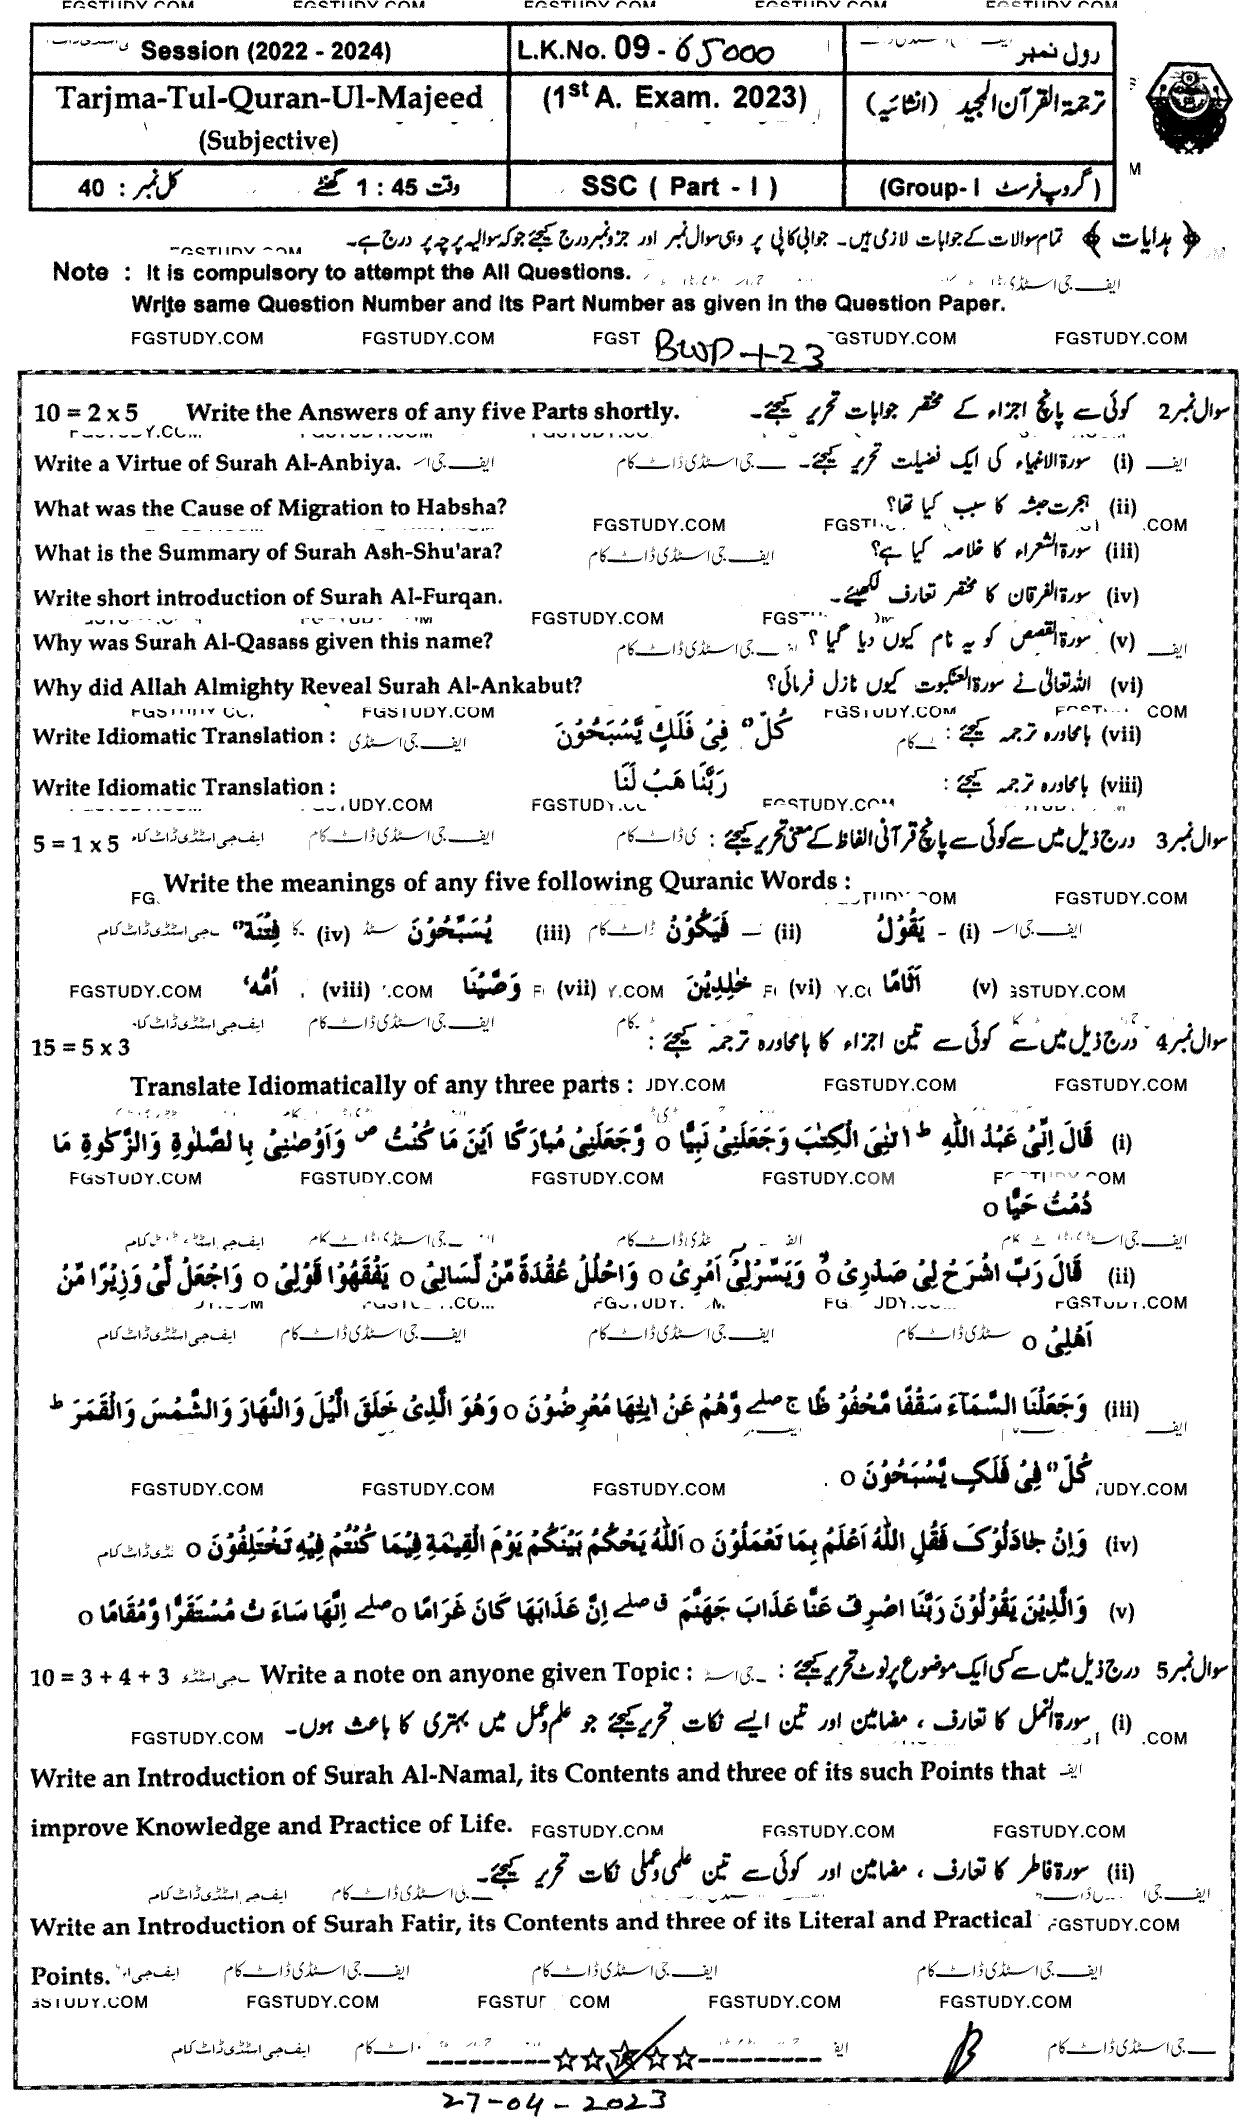 FGSTUDY.COM FGSTUDY.COM FGSTUDY.COM FGSTUDY.COM FGSTUDY.COM
Session (2022 - 2024) L.K.No. 09 - 65000 رول نمبر
Tarjma-Tul-Quran-Ul-Majeed (1st A. Exam. 2023) ترجمۃ القرآن المجید (انشائیہ)
(Subjective)
کل نمبر : 40 وقت 1 : 45 گھنٹے SSC ( Part - I ) (Group- I گروپ فرسٹ)
﴿ہدایات﴾ تمام سوالات کے جوابات لازمی ہیں۔ جوابی کاپی پر وہی سوال نمبر اور جزو نمبر درج کیجئے جو کہ سوالیہ پرچہ پر درج ہے۔
Note : It is compulsory to attempt the All Questions.
Write same Question Number and its Part Number as given in the Question Paper.
FGSTUDY.COM FGSTUDY.COM FGST BWP-1-23 FGSTUDY.COM FGSTUDY.COM
10 = 2 x 5 Write the Answers of any five Parts shortly. سوال نمبر 2 کوئی سے پانچ اجزاء کے مختصر جوابات تحریر کیجئے۔
Write a Virtue of Surah Al-Anbiya. (i) سورۃ الانبیاء کی ایک فضیلت تحریر کیجئے۔
What was the Cause of Migration to Habsha? (ii) ہجرت حبشہ کا سبب کیا تھا؟
What is the Summary of Surah Ash-Shu'ara? (iii) سورۃ الشعراء کا خلاصہ کیا ہے؟
Write short introduction of Surah Al-Furqan. (iv) سورۃ الفرقان کا مختصر تعارف لکھیئے۔
Why was Surah Al-Qasass given this name? (v) سورۃ القصص کو یہ نام کیوں دیا گیا ؟
Why did Allah Almighty Reveal Surah Al-Ankabut? (vi) اللہ تعالیٰ نے سورۃ العنکبوت کیوں نازل فرمائی؟
Write Idiomatic Translation : كُلٌّ فِىْ فَلَكٍ يَّسْبَحُوْنَ (vii) بامحاورہ ترجمہ کیجئے :
Write Idiomatic Translation : رَبَّنَا هَبْ لَنَا (viii) بامحاورہ ترجمہ کیجئے :
5 = 1 x 5 سوال نمبر 3 درج ذیل میں سے کوئی سے پانچ قرآنی الفاظ کے معنی تحریر کیجئے :
Write the meanings of any five following Quranic Words :
(i) يَقُوْلُ (ii) فَيَكُوْنُ (iii) يُسَبِّحُوْنَ (iv) فِتْنَةٌ
(v) اَثَامًا (vi) خٰلِدِيْنَ (vii) وَصَّيْنَا (viii) اُمُّهٗ
15 = 5 x 3 سوال نمبر 4 درج ذیل میں سے کوئی سے تین اجزاء کا بامحاورہ ترجمہ کیجئے :
Translate Idiomatically of any three parts :
(i) قَالَ اِنِّىْ عَبْدُ اللّٰهِ ط اٰتٰنِىَ الْكِتٰبَ وَجَعَلَنِىْ نَبِيًّا o وَّجَعَلَنِىْ مُبَارَكًا اَيْنَ مَا كُنْتُ ص وَاَوْصٰنِىْ بِالصَّلٰوةِ وَالزَّكٰوةِ مَا
دُمْتُ حَيًّا o
(ii) قَالَ رَبِّ اشْرَحْ لِىْ صَدْرِىْ o وَيَسِّرْلِىْ اَمْرِىْ o وَاحْلُلْ عُقْدَةً مِّنْ لِّسَانِىْ o يَفْقَهُوْا قَوْلِىْ o وَاجْعَلْ لِّىْ وَزِيْرًا مِّنْ
اَهْلِىْ o
(iii) وَجَعَلْنَا السَّمَآءَ سَقْفًا مَّحْفُوْظًا ج صلے وَّهُمْ عَنْ اٰيٰتِهَا مُعْرِضُوْنَ o وَهُوَ الَّذِىْ خَلَقَ الَّيْلَ وَالنَّهَارَ وَالشَّمْسَ وَالْقَمَرَ ط
كُلٌّ فِىْ فَلَكٍ يَّسْبَحُوْنَ o
(iv) وَاِنْ جَادَلُوْكَ فَقُلِ اللّٰهُ اَعْلَمُ بِمَا تَعْمَلُوْنَ o اَللّٰهُ يَحْكُمُ بَيْنَكُمْ يَوْمَ الْقِيٰمَةِ فِيْمَا كُنْتُمْ فِيْهِ تَخْتَلِفُوْنَ o
(v) وَالَّذِيْنَ يَقُوْلُوْنَ رَبَّنَا اصْرِفْ عَنَّا عَذَابَ جَهَنَّمَ ق صلے اِنَّ عَذَابَهَا كَانَ غَرَامًا o صلے اِنَّهَا سَآءَتْ مُسْتَقَرًّا وَّمُقَامًا o
10 = 3 + 4 + 3 Write a note on anyone given Topic : سوال نمبر 5 درج ذیل میں سے کسی ایک موضوع پر نوٹ تحریر کیجئے :
(i) سورۃ النمل کا تعارف ، مضامین اور تین ایسے نکات تحریر کیجئے جو علم و عمل میں بہتری کا باعث ہوں۔
Write an Introduction of Surah Al-Namal, its Contents and three of its such Points that
improve Knowledge and Practice of Life. FGSTUDY.COM FGSTUDY.COM FGSTUDY.COM
(ii) سورۃ فاطر کا تعارف ، مضامین اور کوئی سے تین علمی و عملی نکات تحریر کیجئے۔
Write an Introduction of Surah Fatir, its Contents and three of its Literal and Practical FGSTUDY.COM
Points. ایف جی اسٹڈی ڈاٹ کام
FGSTUDY.COM FGSTUDY.COM FGSTUDY.COM FGSTUDY.COM
27-04-2023